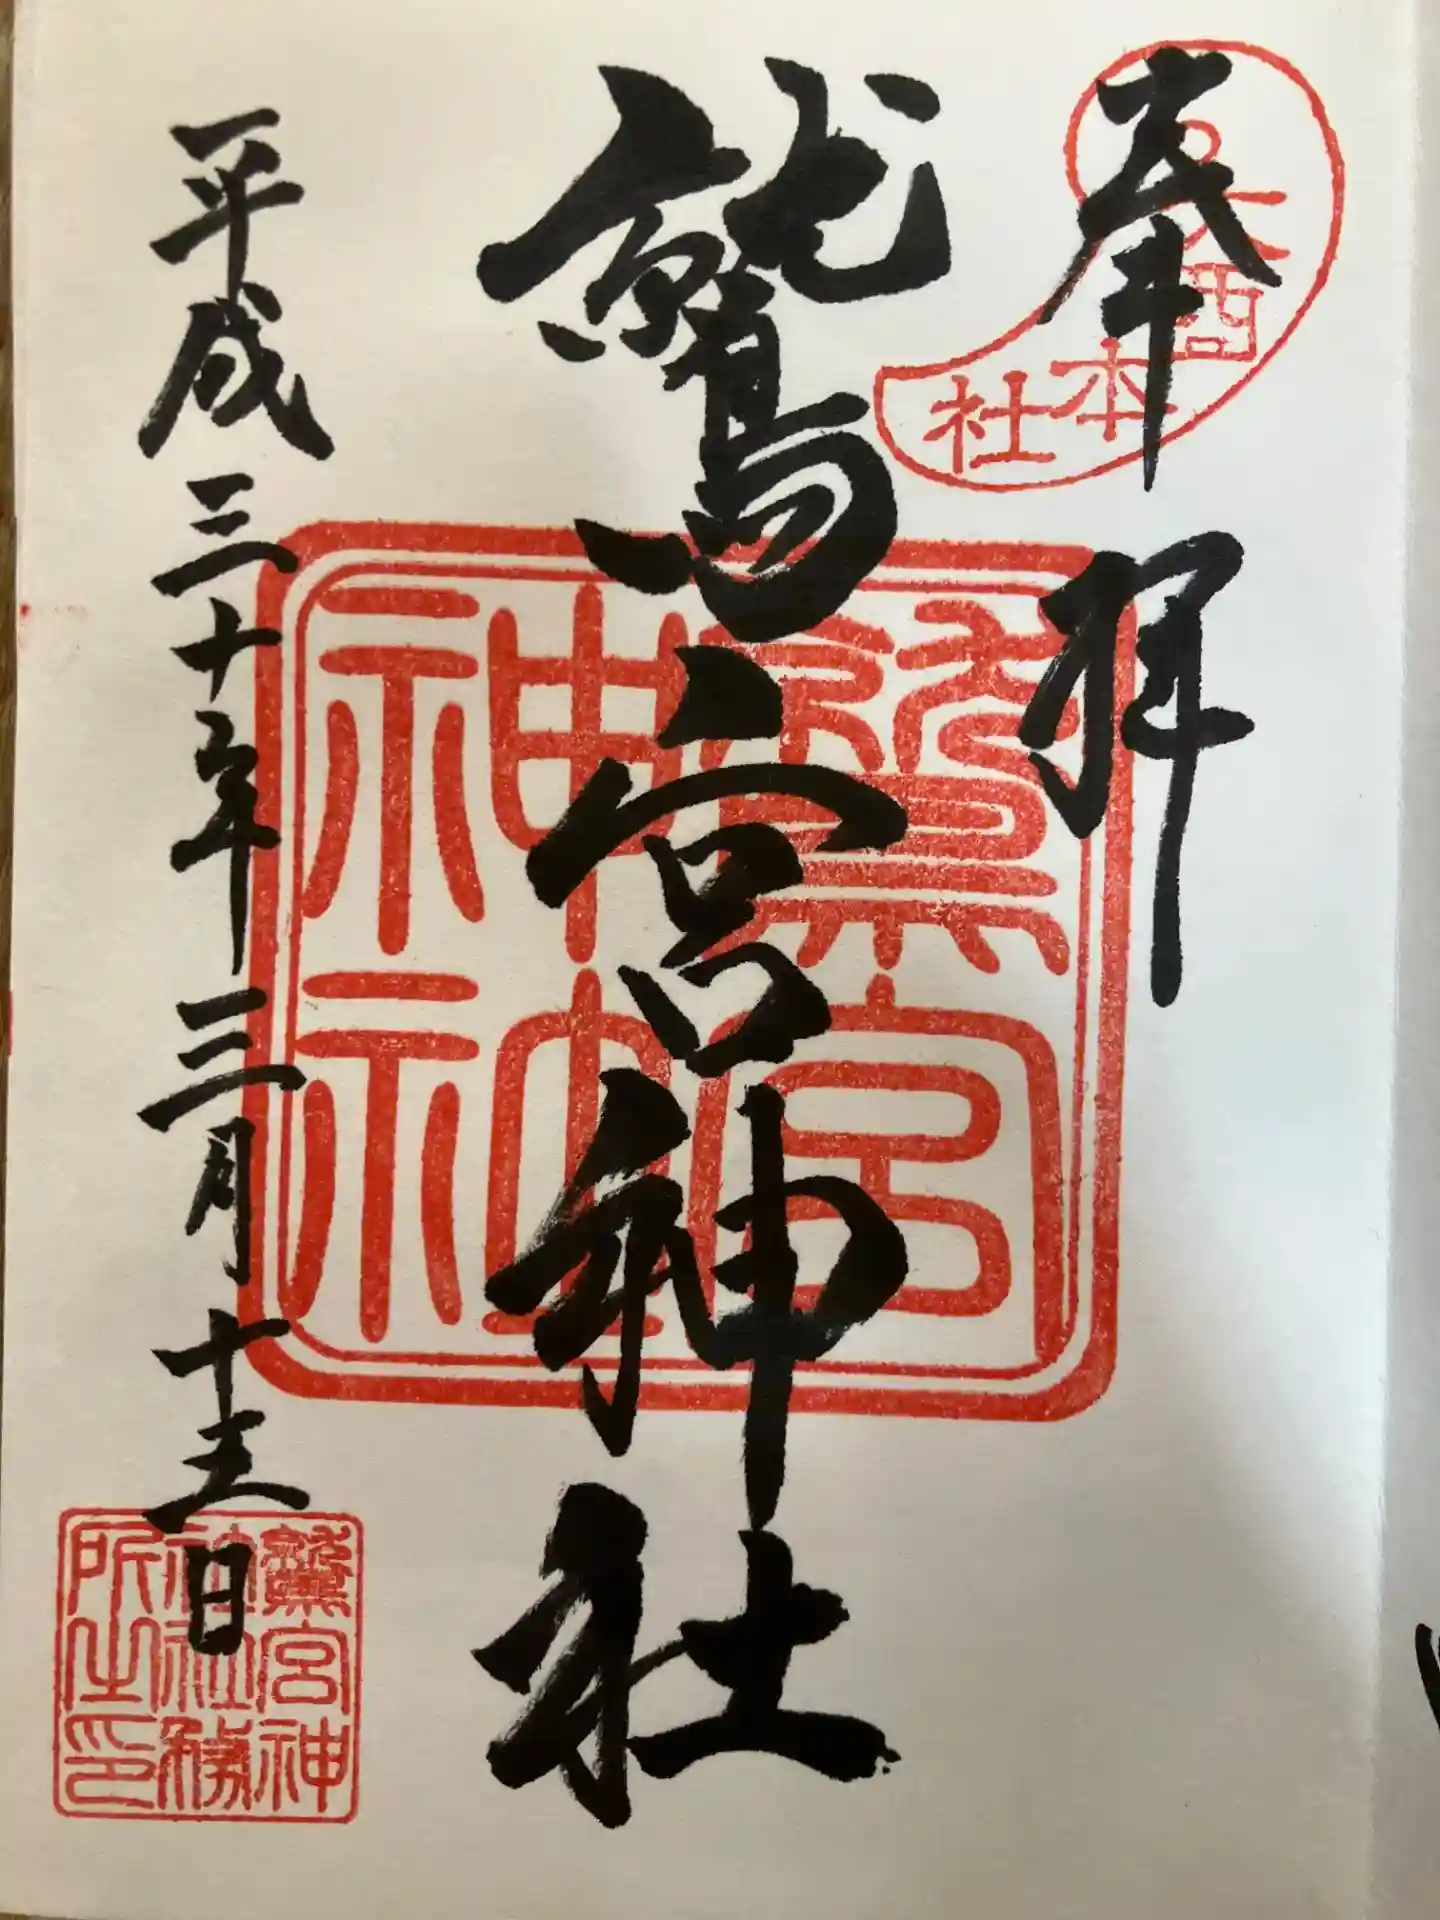 奉拝
大酉本社
鷲宮神社
鷲宮
神社
平成三十年三月十日
鷲宮神
社社務
所之印